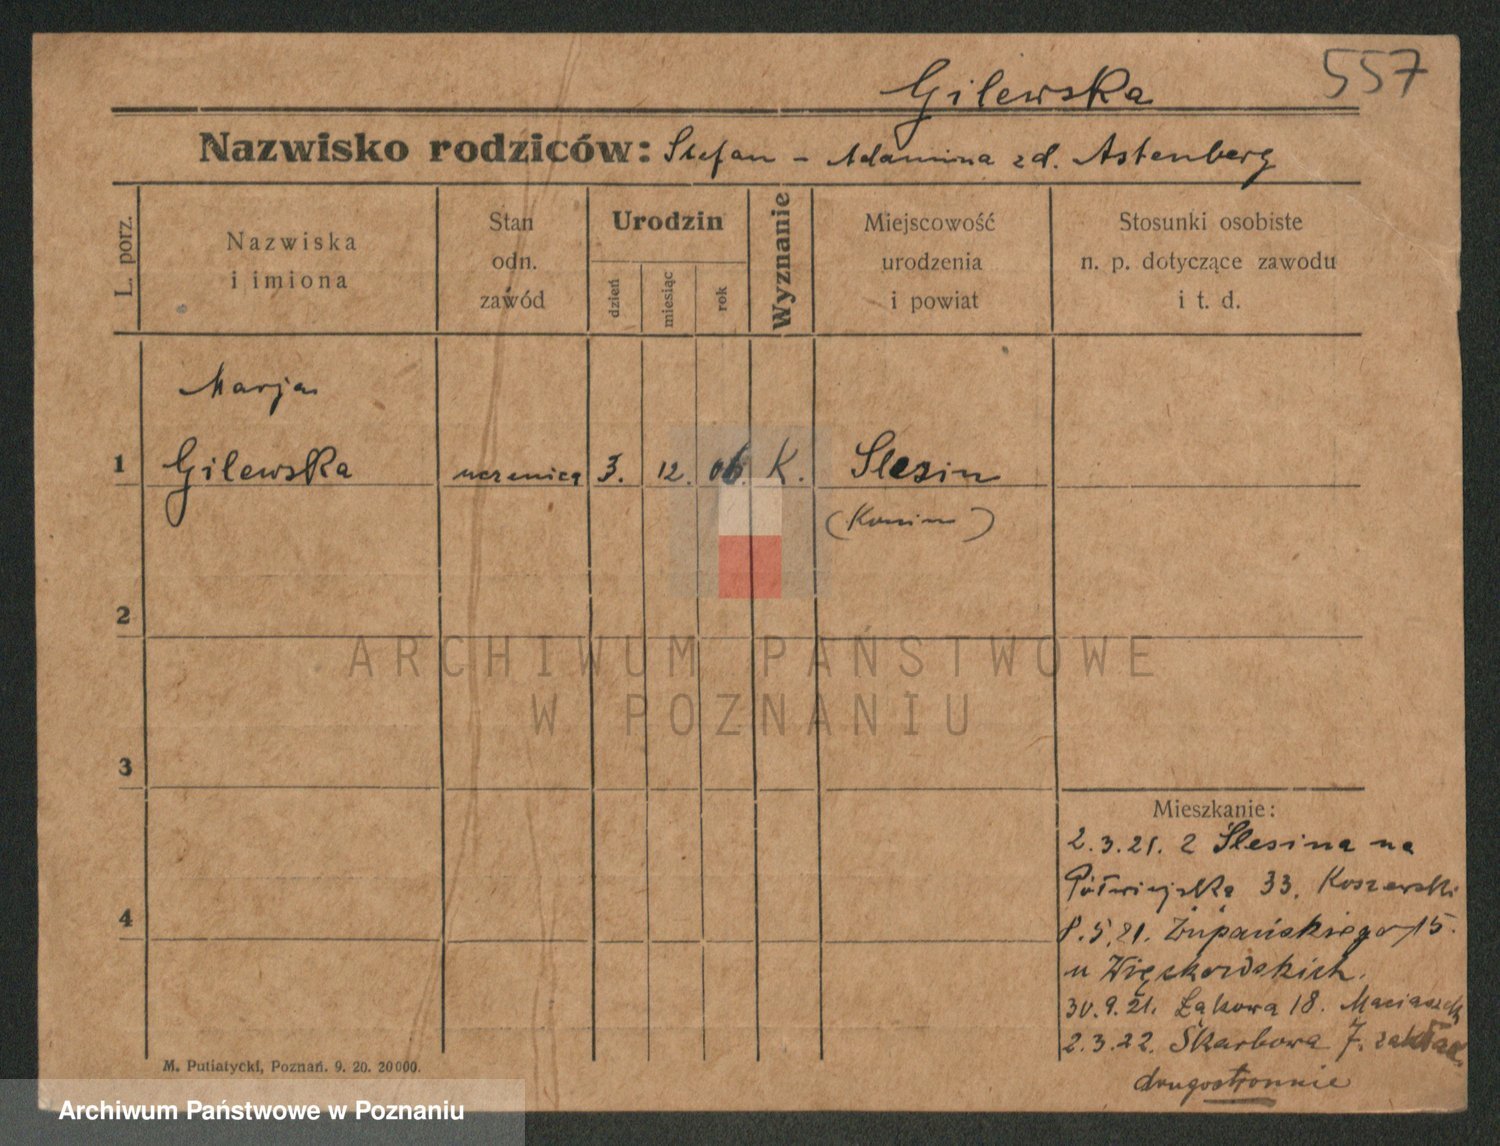 557
Gilewska
Nazwisko rodziców: Stefan - Adamina zd. Astenberg
L. porz.
Nazwiska
i imiona
Stan
odn.
zawód
Urodzin
dzień
miesiąc
rok
Wyznanie
Miejscowość
urodzenia
i powiat
Stosunki osobiste
n. p. dotyczące zawodu
i t. d.
Marja
1 Gilewska uczenica 3. 12. 06. K. Slesin
(Konin)
2
3
4
Mieszkanie:
2.3.21. z Ślesina na
Półwiejska 33. Koszewski
8.5.21. Żupańskiego 15.
u Więckowskich.
30.9.21. Łąkowa 18. Maciaszek
2.3.22. Skarbowa 7. zakład.
drugostronnie
M. Putiatycki, Poznań. 9. 20. 20000.
ARCHIWUM PAŃSTWOWE
W POZNANIU
Archiwum Państwowe w Poznaniu